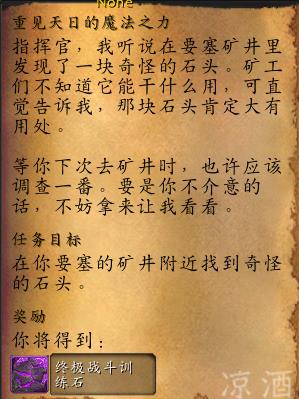 None
重见天日的魔法之力
指挥官，我听说在要塞矿井里
发现了一块奇怪的石头。矿工
们不知道它能干什么用，可直
觉告诉我，那块石头肯定大有
用处。
等你下次去矿井时，也许应该
调查一番。要是你不介意的
话，不妨拿来让我看看。
任务目标
在你要塞的矿井附近找到奇怪
的石头。
奖励
你将得到：
终极战斗训
练石
凉酒